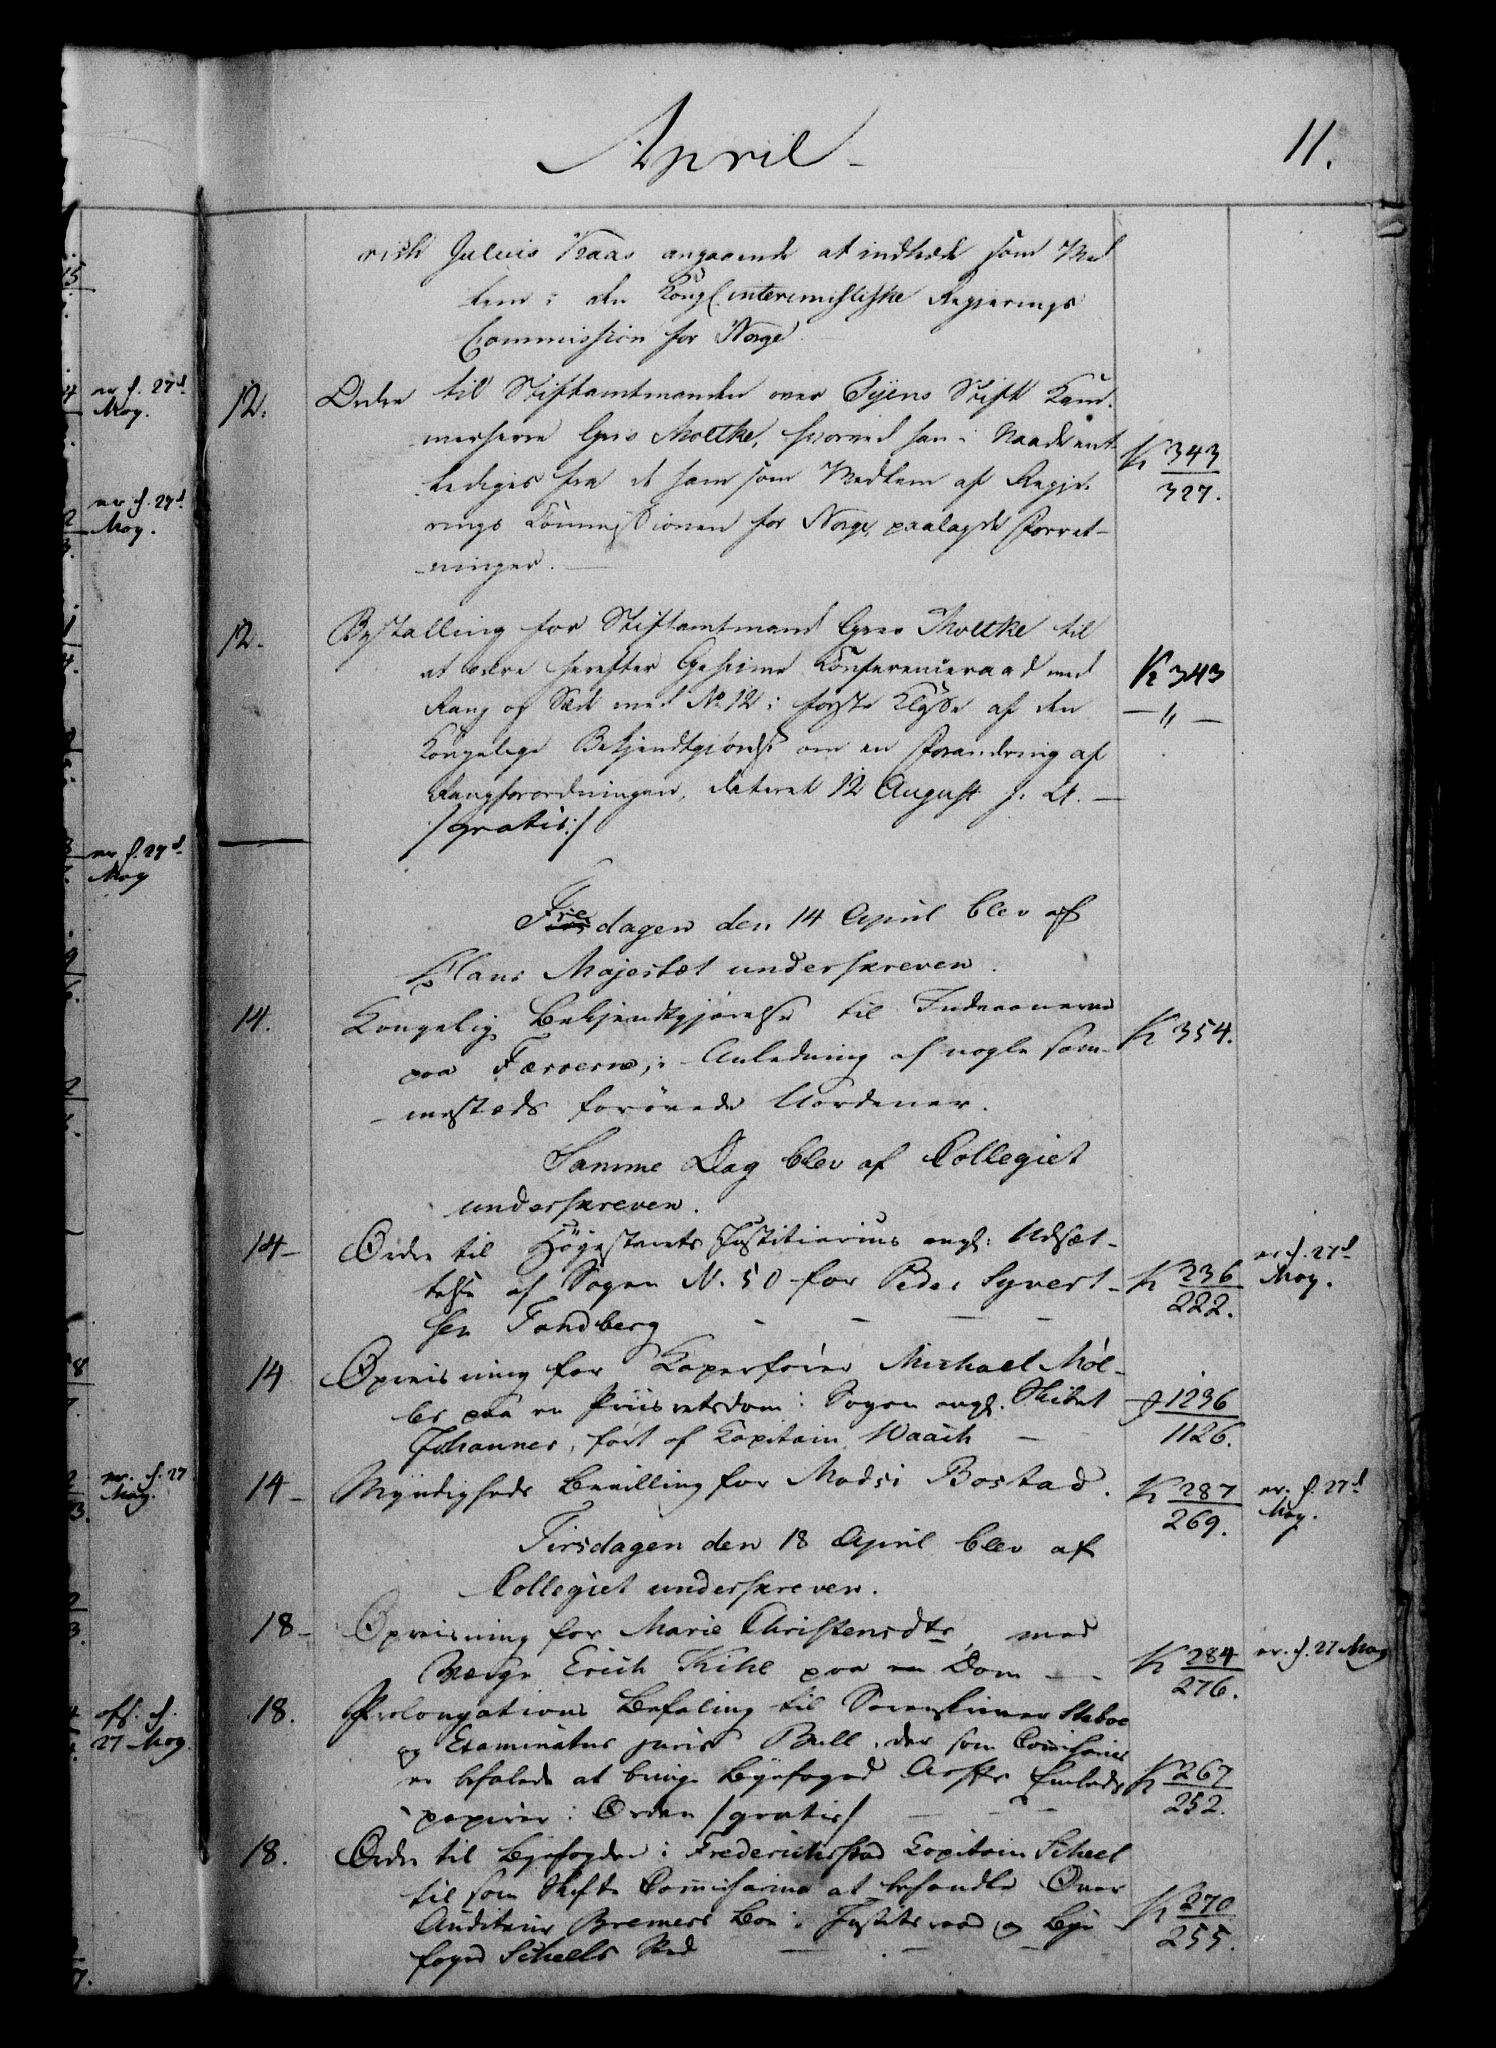 April
11.
rich Julius Kaas angaaende at indtræde som Med
lem i den Kongl. interimistiske Regjerings
Commission for Norge.
12. Ordre til Stiftamtmanden over Fyens Stift Kam-
merherre Greve Moltke, hvorved han i Naade ent-
lediges fra de ham som Medlem af Regje-
rings Commissionen for Norge paalagde Forret-
ninger.
K 343
327.
12. Bestalling for Stiftamtmand Greve Moltke til
at være herefter Geheime Conferenceraad med
Rang og Sæde med No 12 i første Klasse af den
Kongelige Bekjendtgjørelse om en Forandring af
Rangforordningen, dateret 12 August f. A. —
/gratis:/
K 343
— " —
Fredagen den 14 April blev af
Hans Majestæt underskreven.
14. Kongelig Bekjendtgjørelse til Indvaanerne
paa Færøerne, i Anledning af nogle sam-
mesteds forøvede Uordener.
K 354.
Samme Dag blev af Collegiet
underskreven.
14 – Ordre til Høiesterets Justitiarius angl: Udsæt-
telse af Sagen N. 50 for Peder Syvert-
sen Tandberg
K 236
222.
er f. 27d
May.
14 Opreisning for Kaperfører Michael Møl-
ler paa en Priisretsdom i Sagen angl. Skibet
Johannes, ført af Kapitain Waach
J 1236
1126.
14 – Myndigheds Bevilling for Madsi Bostad.
K 287
269.
er. f. 27d
May.
Tirsdagen den 18 April blev af
Collegiet underskreven.
18 – Opreisning for Marie Christensdtr, med
Værge Erich Kihl paa en Dom
K 284
276.
er. f. 27 May
18. Prolongations Befaling til Sorenskriver Staboe
og Examinatus juris Bull, der som Commissarier
ere befalede at bringe Byefoged Embeds
papirer i Orden /gratis/
K 267
252.
18. Ordre til Byefogden i Frederichsstad Capitain Scheel
til som Skifte Commissarius at behandle Over
Auditeur Bremers Boe i Justitsraad og Bye
foged Scheels Sted
K 270
255.
er f. 27d
May.
er f. 27d
May.
er f. 27d
May
er. f. 27
May.
f.
27 May.